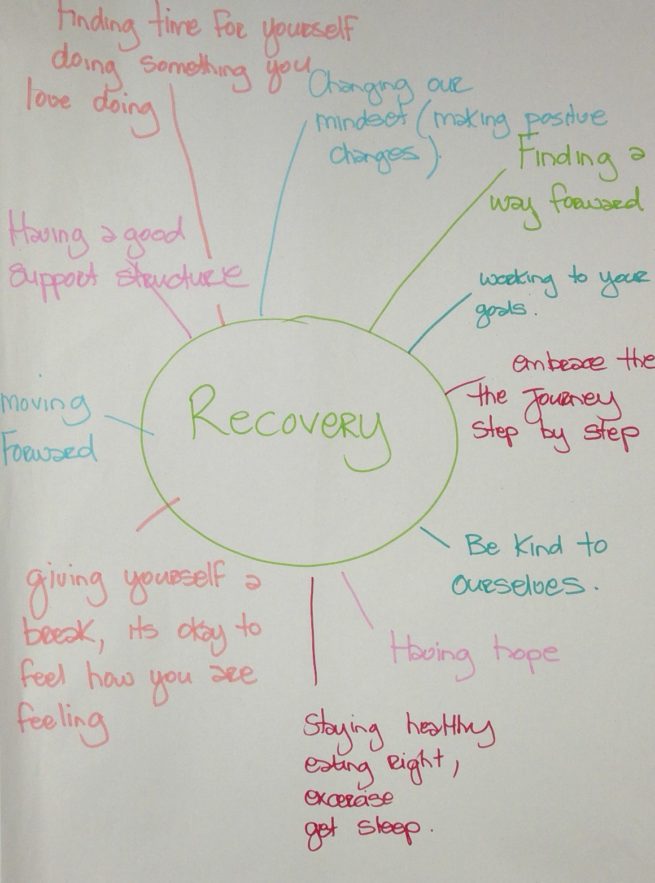 Finding time for yourself
doing something you
love doing
Changing our
mindset (making positive
changes).
Finding a
way forward
Having a good
support structure
working to your
goals.
embrace the
the Journey
step by step
moving
Forward
Recovery
Be Kind to
ourselves.
giving yourself a
break, its okay to
feel how you are
feeling
Having hope
Staying healthy
eating right,
excerise
get sleep.